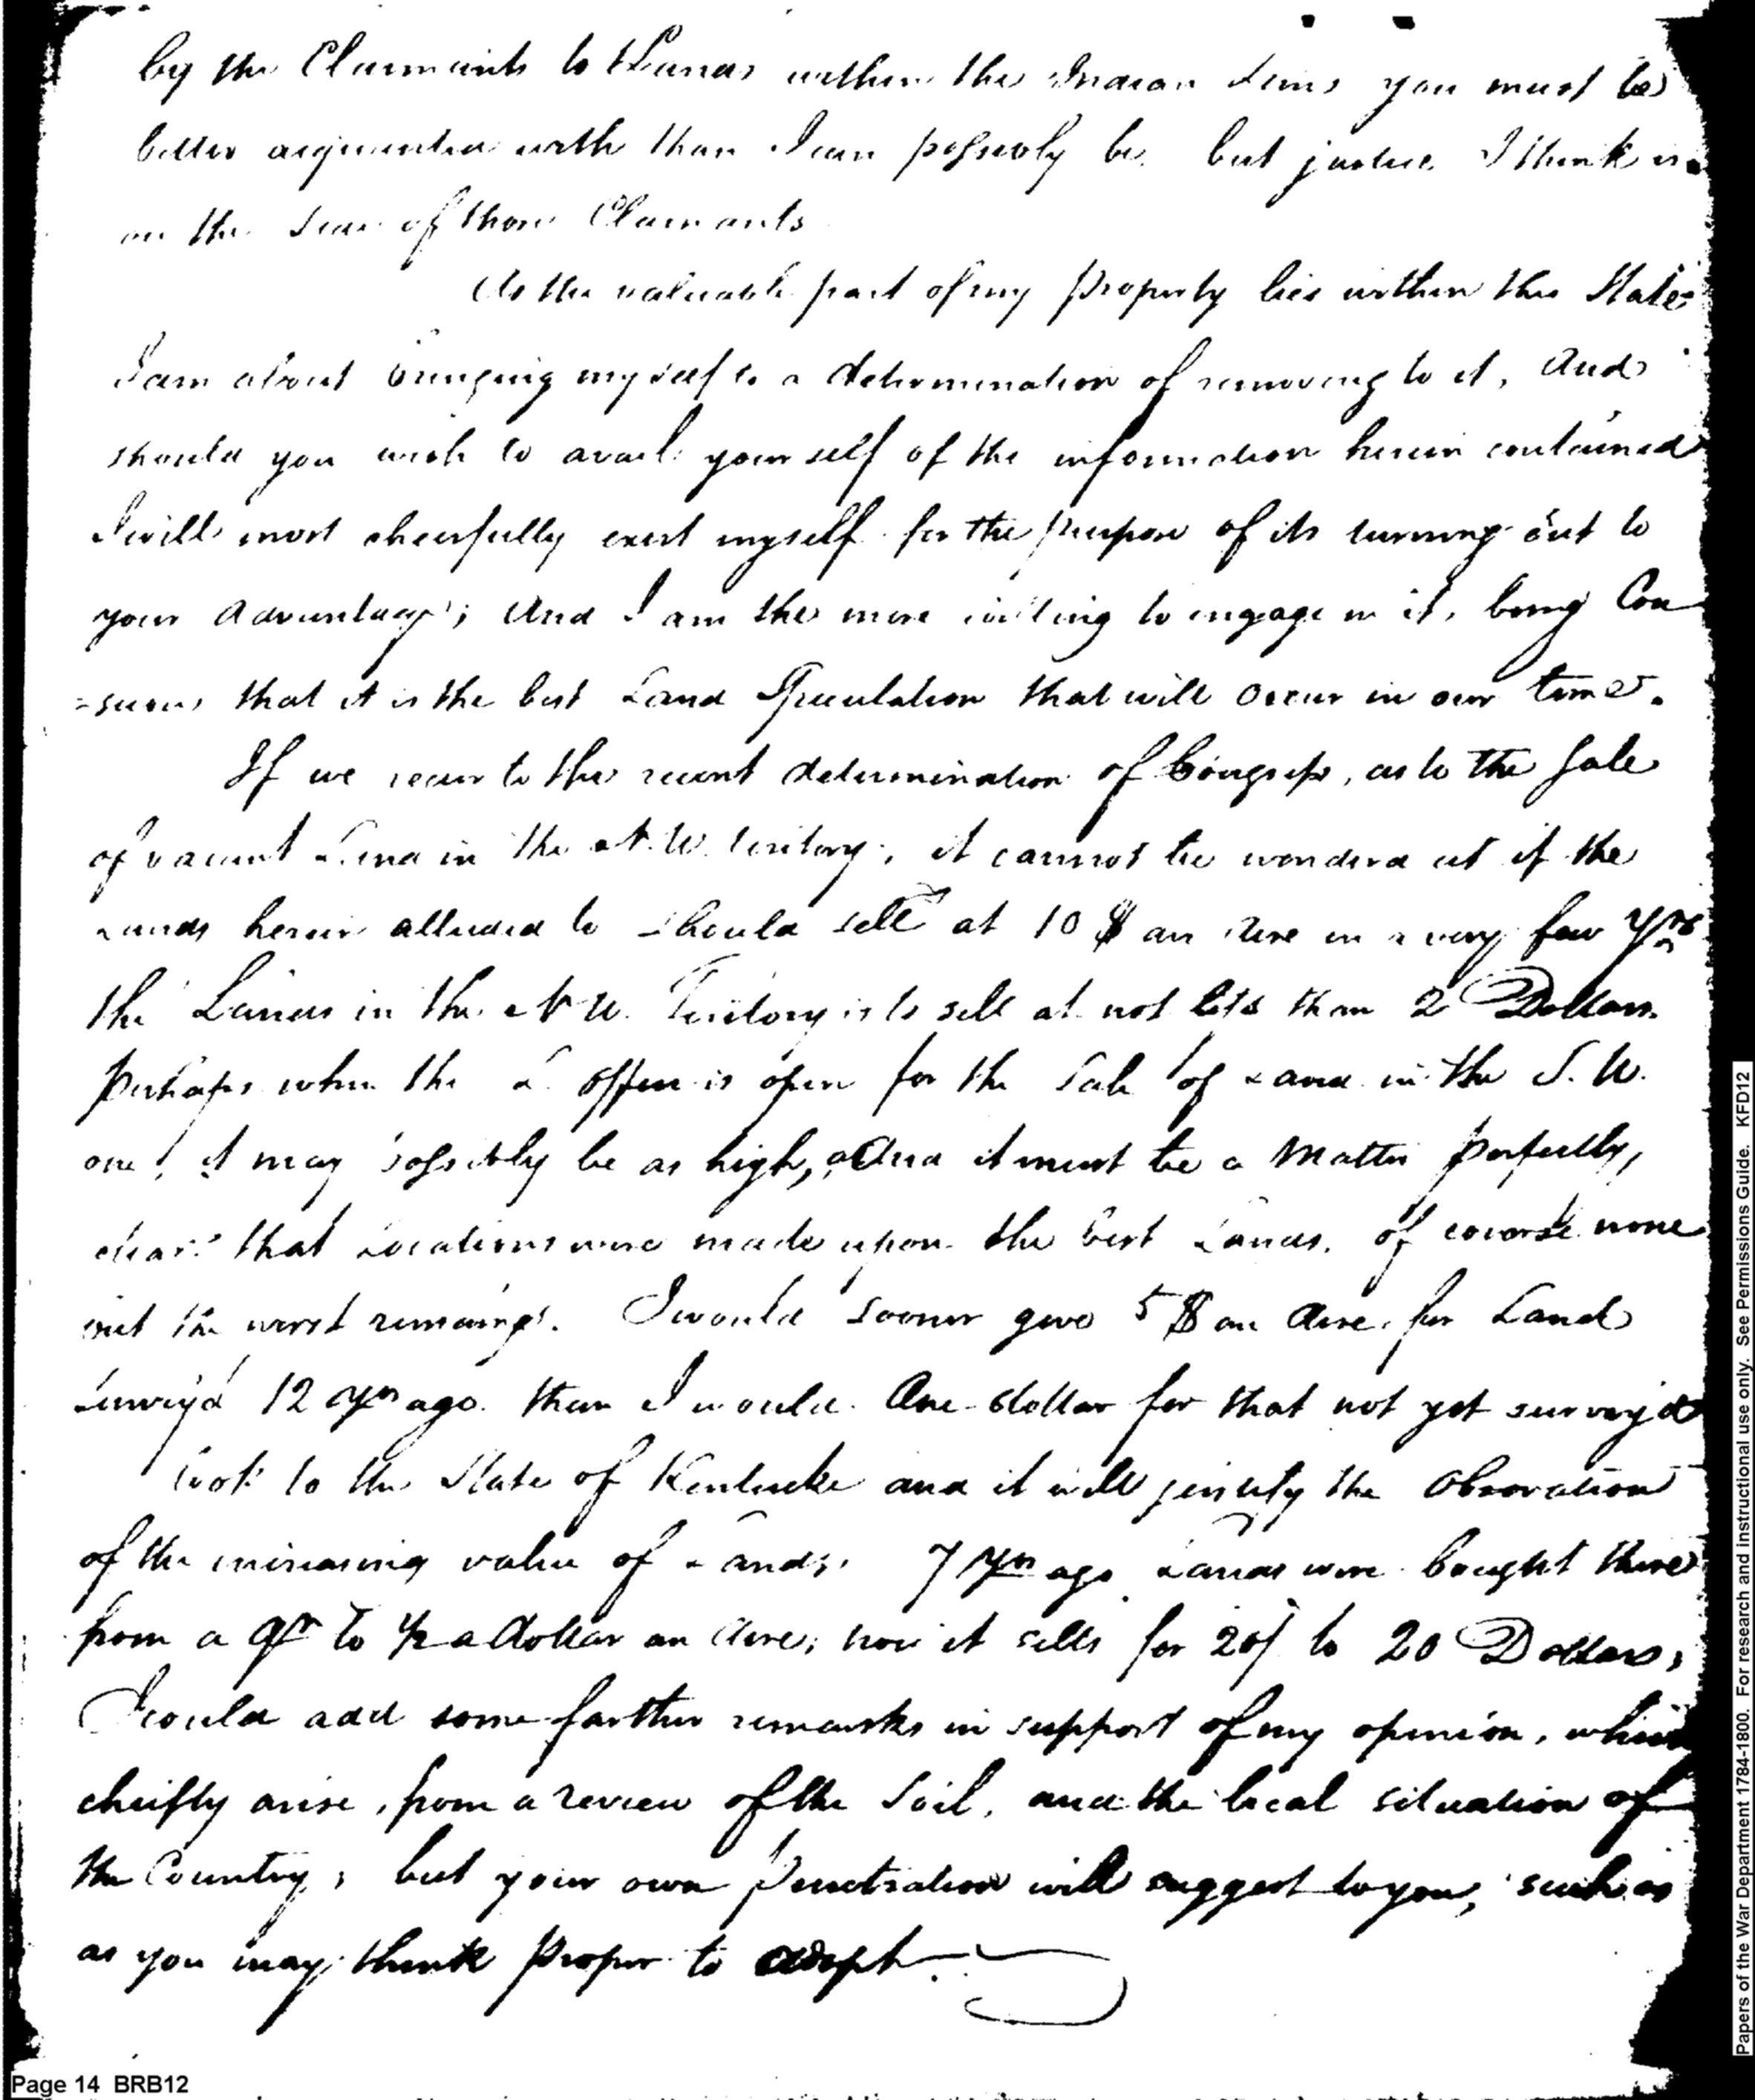 by the Claimants to Lands within the Indian Lines you must be
better acquainted with than I can possibly be. but justice I think is
on the side of those Claimants
As the valuable part of my property lies within this State
I am about bringing myself to a determination of removing to it, And
should you wish to avail yourself of the information herein contained
I will most cheerfully exert myself for the purpose of its turning out to
your advantage; And I am the more willing to engage in it, being Con
=scious that it is the best Land Speculation that will occur in our time.
If we recur to the recent determination of Congress, as to the Sale
of vacant Land in the N. W. teritory, it cannot be wonderd at if the
Lands herein alluded to should sell at 10 $ an Acre in a very few Yrs
the Lands in the N W. Teritory is to sell at not less than 2 Dollars.
perhaps when the L. Office is open for the Sale of Land in the S. W.
one, it may possibly be as high, And it must be a Matter perfectly,
clear that Locations were made upon the best Lands, of course none
but the worst remains. I would sooner give 5 $ an Acre, for Land
Survey'd 12 yrs ago than I would One dollar for that not yet survey'd
Look to the State of Kentucke and it will justify the Observation
of the increasing value of Lands. 7 Yrs ago Lands were bought there
from a qr to ½ a dollar an Acre, now it sells for 20/ to 20 Dollars,
I could add some farther remarks in support of my opinion, which
cheifly arise, from a review of the Soil, and the local situation of
the Country; but your own Penetration will suggest to you, such as
as you may think proper to adopt.
Page 14 BRB12
Papers of the War Department 1784-1800. For research and instructional use only. See Permissions Guide. KFD12